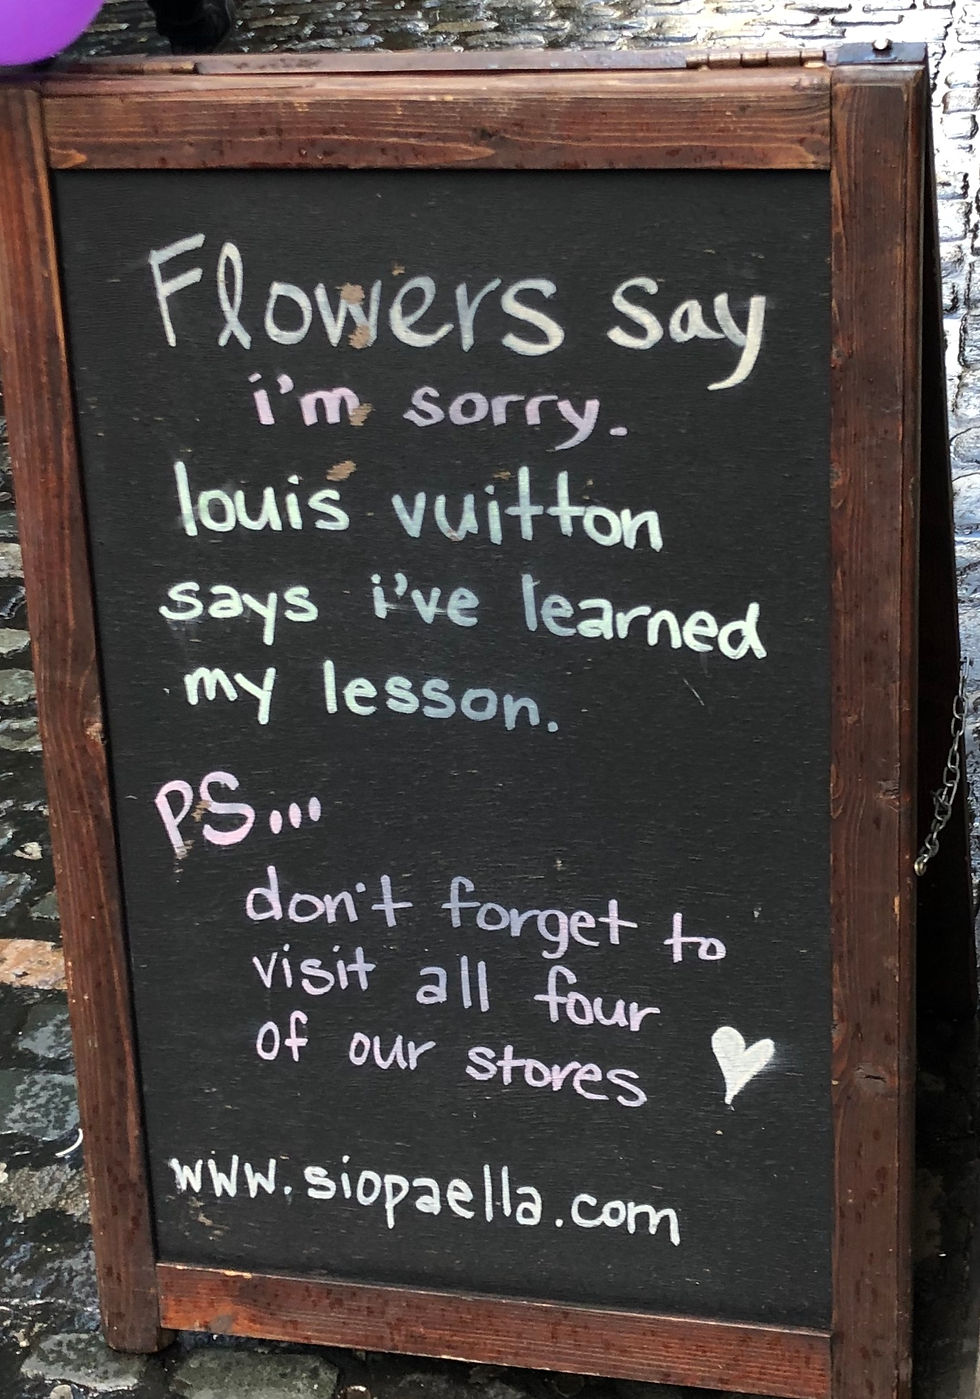 Flowers say
i'm sorry.
louis vuitton
says i've learned
my lesson.
PS...
don't forget to
visit all four
of our stores
www.siopaella.com